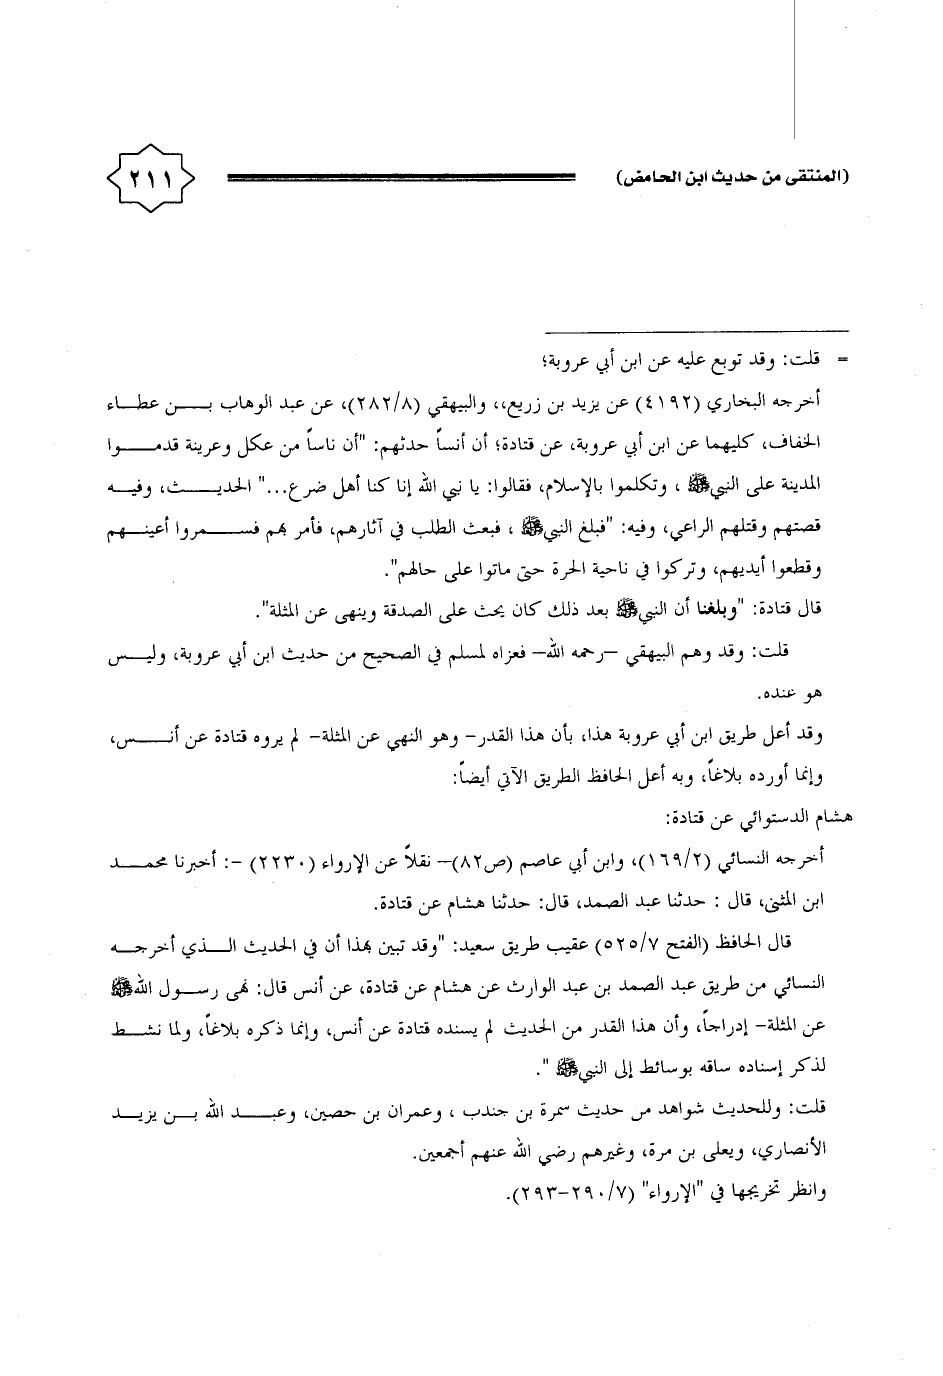 (المنتقى من حديث ابن الحامض)
٢١١
= قلت: وقد توبع عليه عن ابن أبي عروبة؛
أخرجه البخاري (٤١٩٢) عن يزيد بن زريع،، والبيهقي (٢٨٢/٨)، عن عبد الوهاب بن عطاء
الخفاف، كليهما عن ابن أبي عروبة، عن قتادة؛ أن أنساً حدثهم: "أن ناساً من عكل وعرينة قدموا
المدينة على النبيﷺ ، وتكلموا بالإسلام، فقالوا: يا نبي الله إنا كنا أهل ضرع..." الحديث، وفيه
قصتهم وقتلهم الراعي، وفيه: "فبلغ النبيﷺ ، فبعث الطلب في آثارهم، فأمر بهم فسمروا أعينهم
وقطعوا أيديهم، وتركوا في ناحية الحرة حتى ماتوا على حالهم".
قال قتادة: "وبلغنا أن النبيﷺ بعد ذلك كان يحث على الصدقة وينهى عن المثلة".
قلت: وقد وهم البيهقي –رحمه الله– فعزاه لمسلم في الصحيح من حديث ابن أبي عروبة، وليس
هو عنده.
وقد أعل طريق ابن أبي عروبة هذا، بأن هذا القدر– وهو النهي عن المثلة– لم يروه قتادة عن أنس،
وإنما أورده بلاغاً، وبه أعل الحافظ الطريق الآتي أيضاً:
هشام الدستوائي عن قتادة:
أخرجه النسائي (١٦٩/٢)، وابن أبي عاصم (ص٨٢)– نقلاً عن الإرواء (٢٢٣٠) –: أخبرنا محمد
ابن المثنى، قال : حدثنا عبد الصمد، قال: حدثنا هشام عن قتادة.
قال الحافظ (الفتح ٥٢٥/٧) عقيب طريق سعيد: "وقد تبين بهذا أن في الحديث الذي أخرجه
النسائي من طريق عبد الصمد بن عبد الوارث عن هشام عن قتادة، عن أنس قال: نهى رسول اللهﷺ
عن المثلة– إدراجاً، وأن هذا القدر من الحديث لم يسنده قتادة عن أنس، وإنما ذكره بلاغاً، ولما نشط
لذكر إسناده ساقه بوسائط إلى النبيﷺ ".
قلت: وللحديث شواهد من حديث سمرة بن جندب ، وعمران بن حصين، وعبد الله بن يزيد
الأنصاري، ويعلى بن مرة، وغيرهم رضي الله عنهم أجمعين.
وانظر تخريجها في "الإرواء" (٢٩٠/٧–٢٩٣).